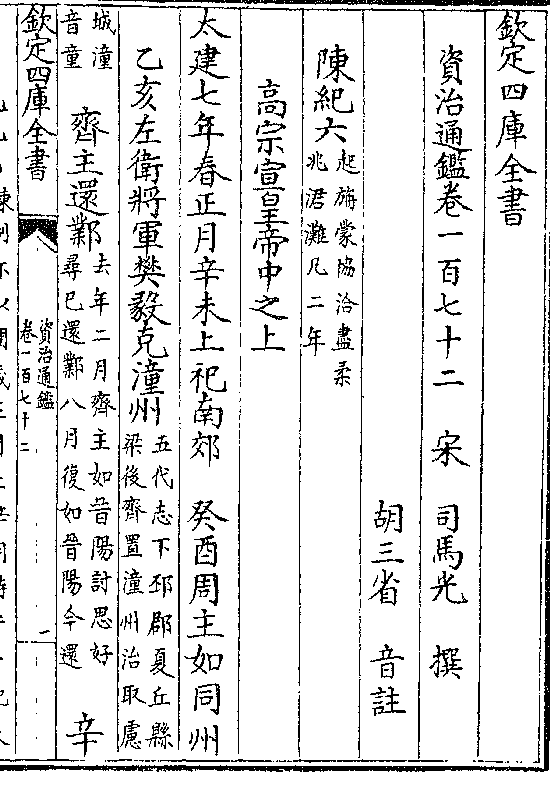 欽定四庫全書
資治通鑑卷一百七十二 宋 司馬光 撰
胡三省 音註
陳紀六 起旃蒙協洽盡柔兆涒灘凡二年
高宗宣皇帝中之上
太建七年春正月辛未上祀南郊 癸酉周主如同州
乙亥左衛將軍樊毅克潼州 五代志下邳郡夏丘縣梁後齊置潼州治取慮
城潼音童 齊主還鄴 去年二月齊主如晉陽討思好尋已還鄴八月復如晉陽今還 辛
欽定四庫全書
資治通鑑
卷一百七十二
一